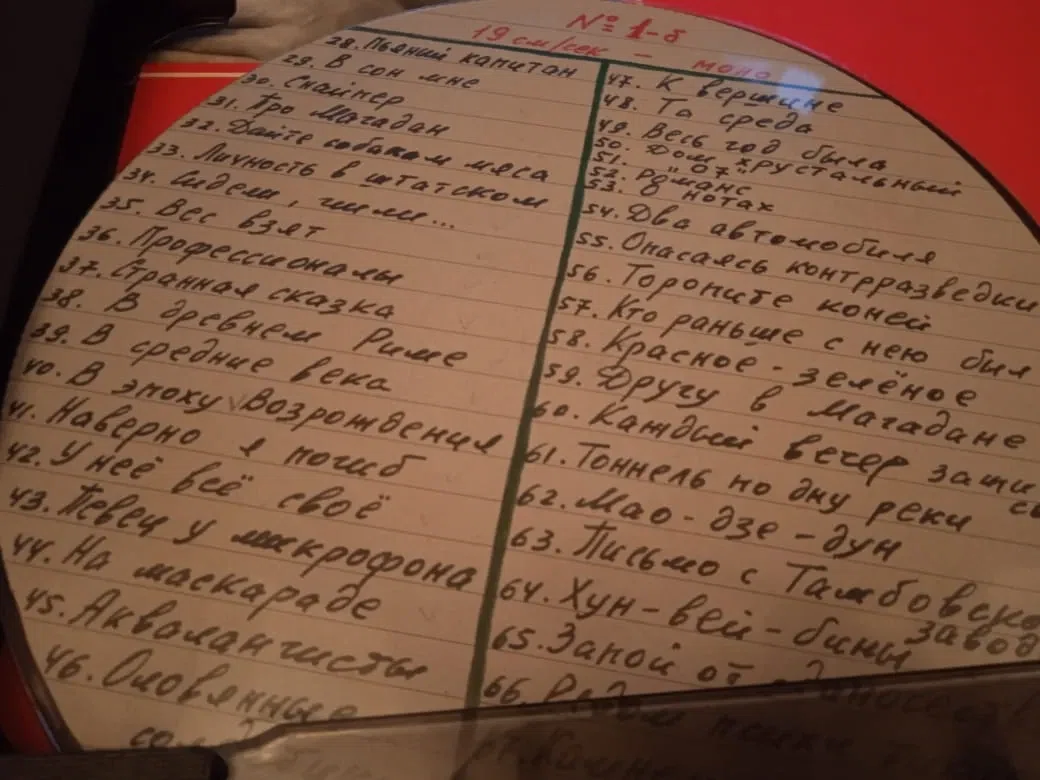 № 1-б
19 см/сек — моно
28. Пьяный капитан
29. В сон мне
30. Снайпер
31. Про Магадан
32. Дайте собакам мяса
33. Личность в штатском
34. Сидели, пили...
35. Вес взят
36. Профессионалы
37. Странная сказка
38. В древнем Риме
39. В средние века
40. В эпоху Возрождения
41. Наверно я погиб
42. У неё всё своё
43. Певец у микрофона
44. На маскараде
45. Аквалангисты
46. Оловянные
47. К вершине
48. Та среда
49. Весь год была
50. Дом хрустальный
51. "07"
52. Романс
53. О нотах
54. Два автомобиля
55. Опасаясь контрразведки
56. Торопите коней
57. Кто раньше с нею был
58. Красное - зелёное
59. Другу в Магадане
60. Каждый вечер
61. Тоннель по дну реки
62. Мао - дзе - дун
63. Письмо с Тамбовско
завод
64. Хун - вей - бины
65. Запой от
66.